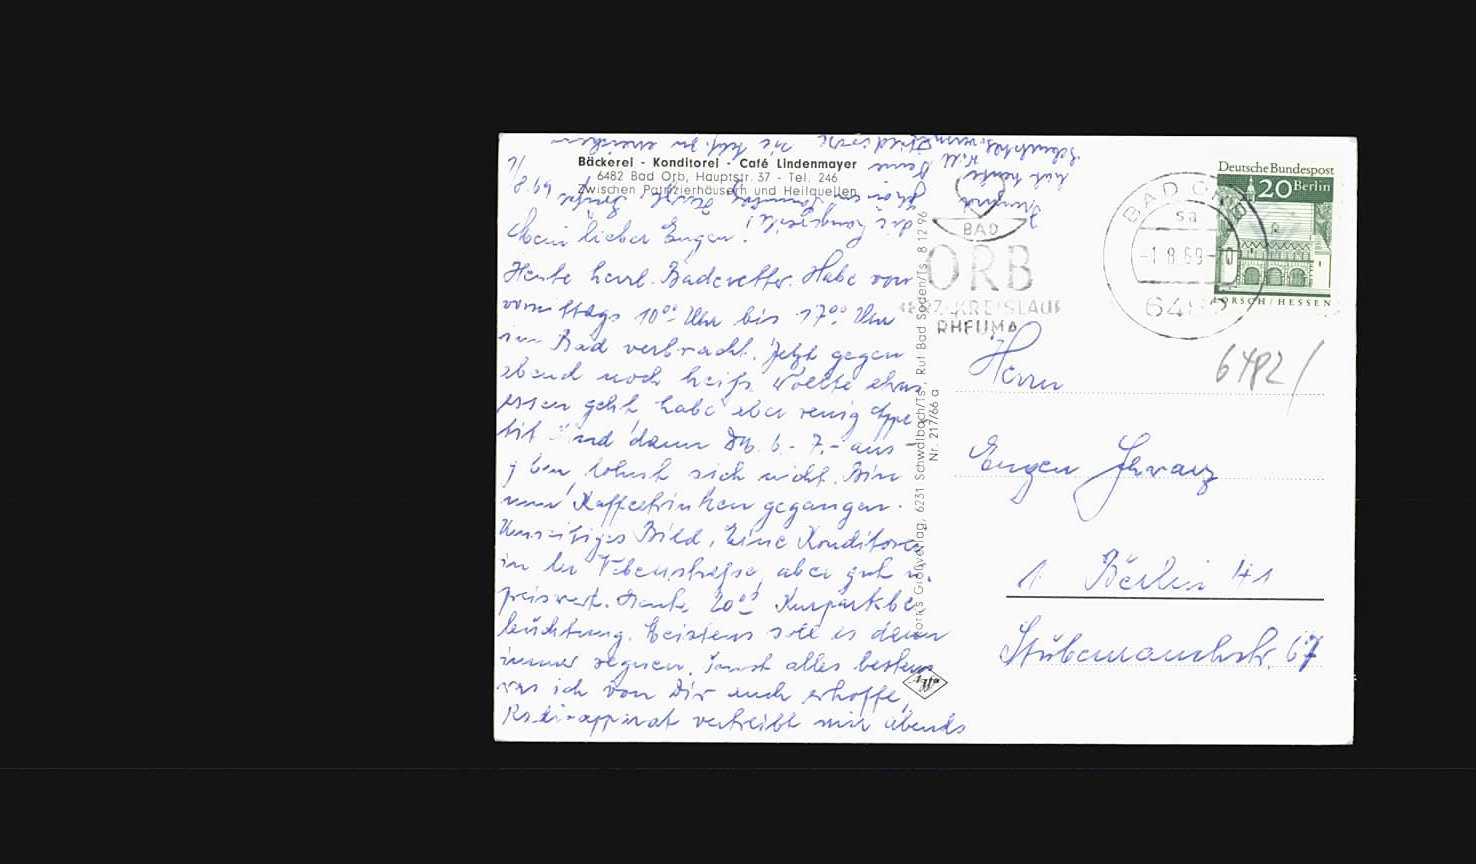 Bäckerei - Konditorei - Café Lindenmayer
6482 Bad Orb, Hauptstr. 37 - Tel. 246
Zwischen Patrizierhäusern und Heilquellen
1/8.69
Mein lieber Eugen!
Heute herrl. Badewetter. Habe von
vormittags 10⁰⁰ Uhr bis 17⁰⁰ Uhr
im Bad verbracht. Jetzt gegen
abend noch heiß. Wollte etwas
essen geht habe aber wenig Appe
tit und dann DM. 6.- 7.- aus-
geben lohnt sich nicht. Bin
nun Kaffeetrinken gegangen.
Umseitiges Bild. Eine Konditorei
in der Nebenstraße, aber gut u.
preiswert. Heute 20⁰⁰ Kurparkbe
leuchtung. Meistens soll es dann
immer regnen. Sonst alles bestens
was ich von Dir auch erhoffe,
Radioapparat vertreibt mir abends
die Langeweile!
Rud Bad Soden/Ts. 8 12 96
Großverlag, 6231 Schwalbach/Ts.
Nr. 217/66 a
Agfa
BAD
ORB
HERZ-KREISLAUF
RHEUMA
BAD ORB
sa
-1.8.69-
6482
Deutsche Bundespost
20 Berlin
LORSCH/HESSEN
6482/
Herrn
Eugen Schwarz
1 Berlin 41
Stubenrauchstr. 67